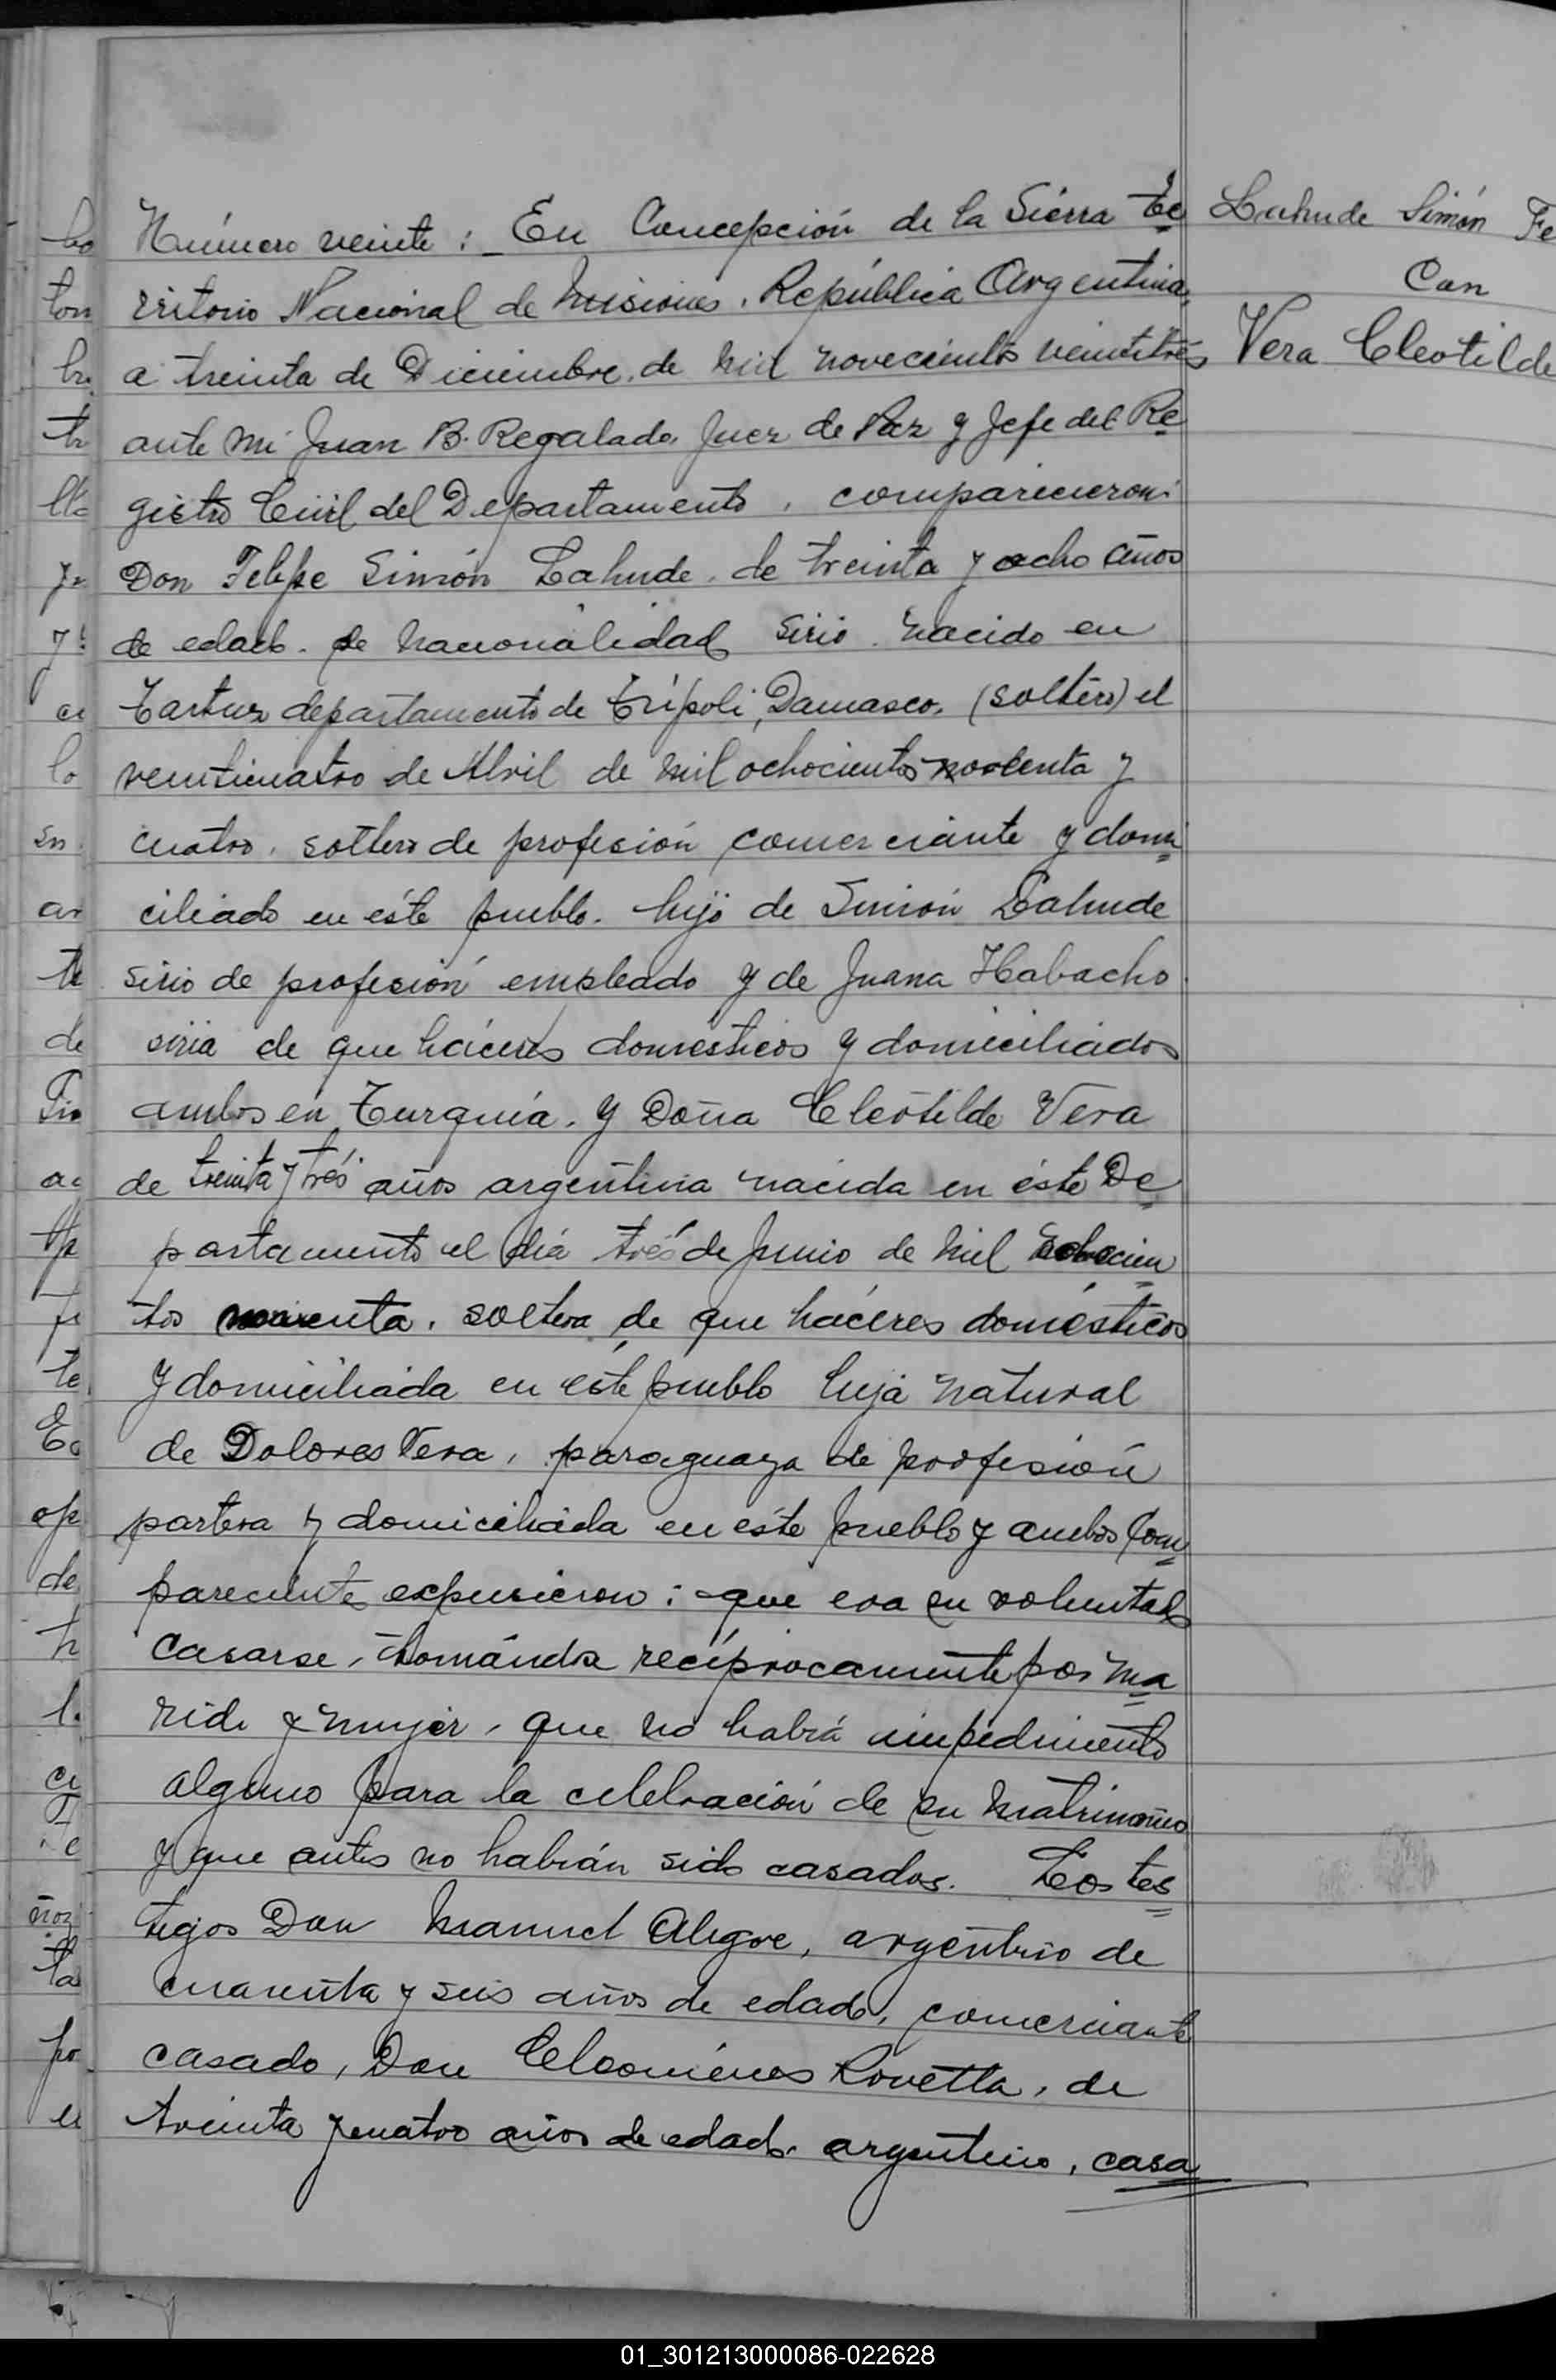 Número veinte : En Concepción de la Sierra Te
rritorio Nacional de Misiones. República Argentina,
a treinta de Diciembre de mil novecientos veintitrés
ante mi Juan B. Regalado, Juez de Paz y Jefe del Re
gistro Civil del Departamento, comparecieron:
Don Felipe Simón Lahude, de treinta y ocho años
de edad. de nacionalidad sirio. nacido en
Tartuz departamento de Trípoli, Damasco, (soltero) el
veinticuatro de Abril de mil ochocientos noventa y
cuatro, soltero de profesión comerciante y domi
ciliado en éste pueblo. hijo de Simón Lahude
sirio de profesión empleado y de Juana Habacho
siria de que háceres domésticos y domiciliados
ambos en Turquía. y Doña Cleotilde Vera
de treinta y trés años argentina nacida en éste De
partamento el día trés de Junio de mil ochocien
tos noventa, soltera de que háceres domésticos
y domiciliada en éste pueblo hija natural
de Dolores Vera, paraguaya de profesión
partera y domiciliada en éste pueblo y ambos com
pareciente expusieron : que era su voluntad
casarse, tomándose recíprocamente por ma
rido y mujer, que no habrá impedimento
alguno para la celebración de su matrimonio
y que antes no habían sido casados. Los tes
tigos Don Manuel Alegre, argentino de
cuarenta y seis años de edad, comerciante
casado, Don Cleomenes Rovetta, de
treinta y cuatro años de edad. argentino, casa
Lahude Simón Fe
Con
Vera Cleotilde
01_301213000086-022628